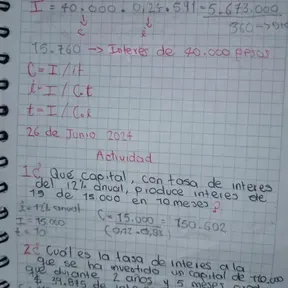 I = 40.000 . 0,24 . 591 = 5.673.000
360
I C
15.760 → Interes de 40.000 pesos
C = I / i.t
i = I / C.t
t = I / C.i
26 de Junio 2024
Actividad
1¿ Qué capital, con tasa de interes
del 12% anual, produce interes de
19 de 15 000 en 10 meses?
i = 12% anual
I = 15.000
t = 10
C = 15.000 = 150.602
(0,12 . 0,83)
2¿ Cuál es la tasa de interes a la
que se ha invertido un capital de
que durante 2 años y 5 meses